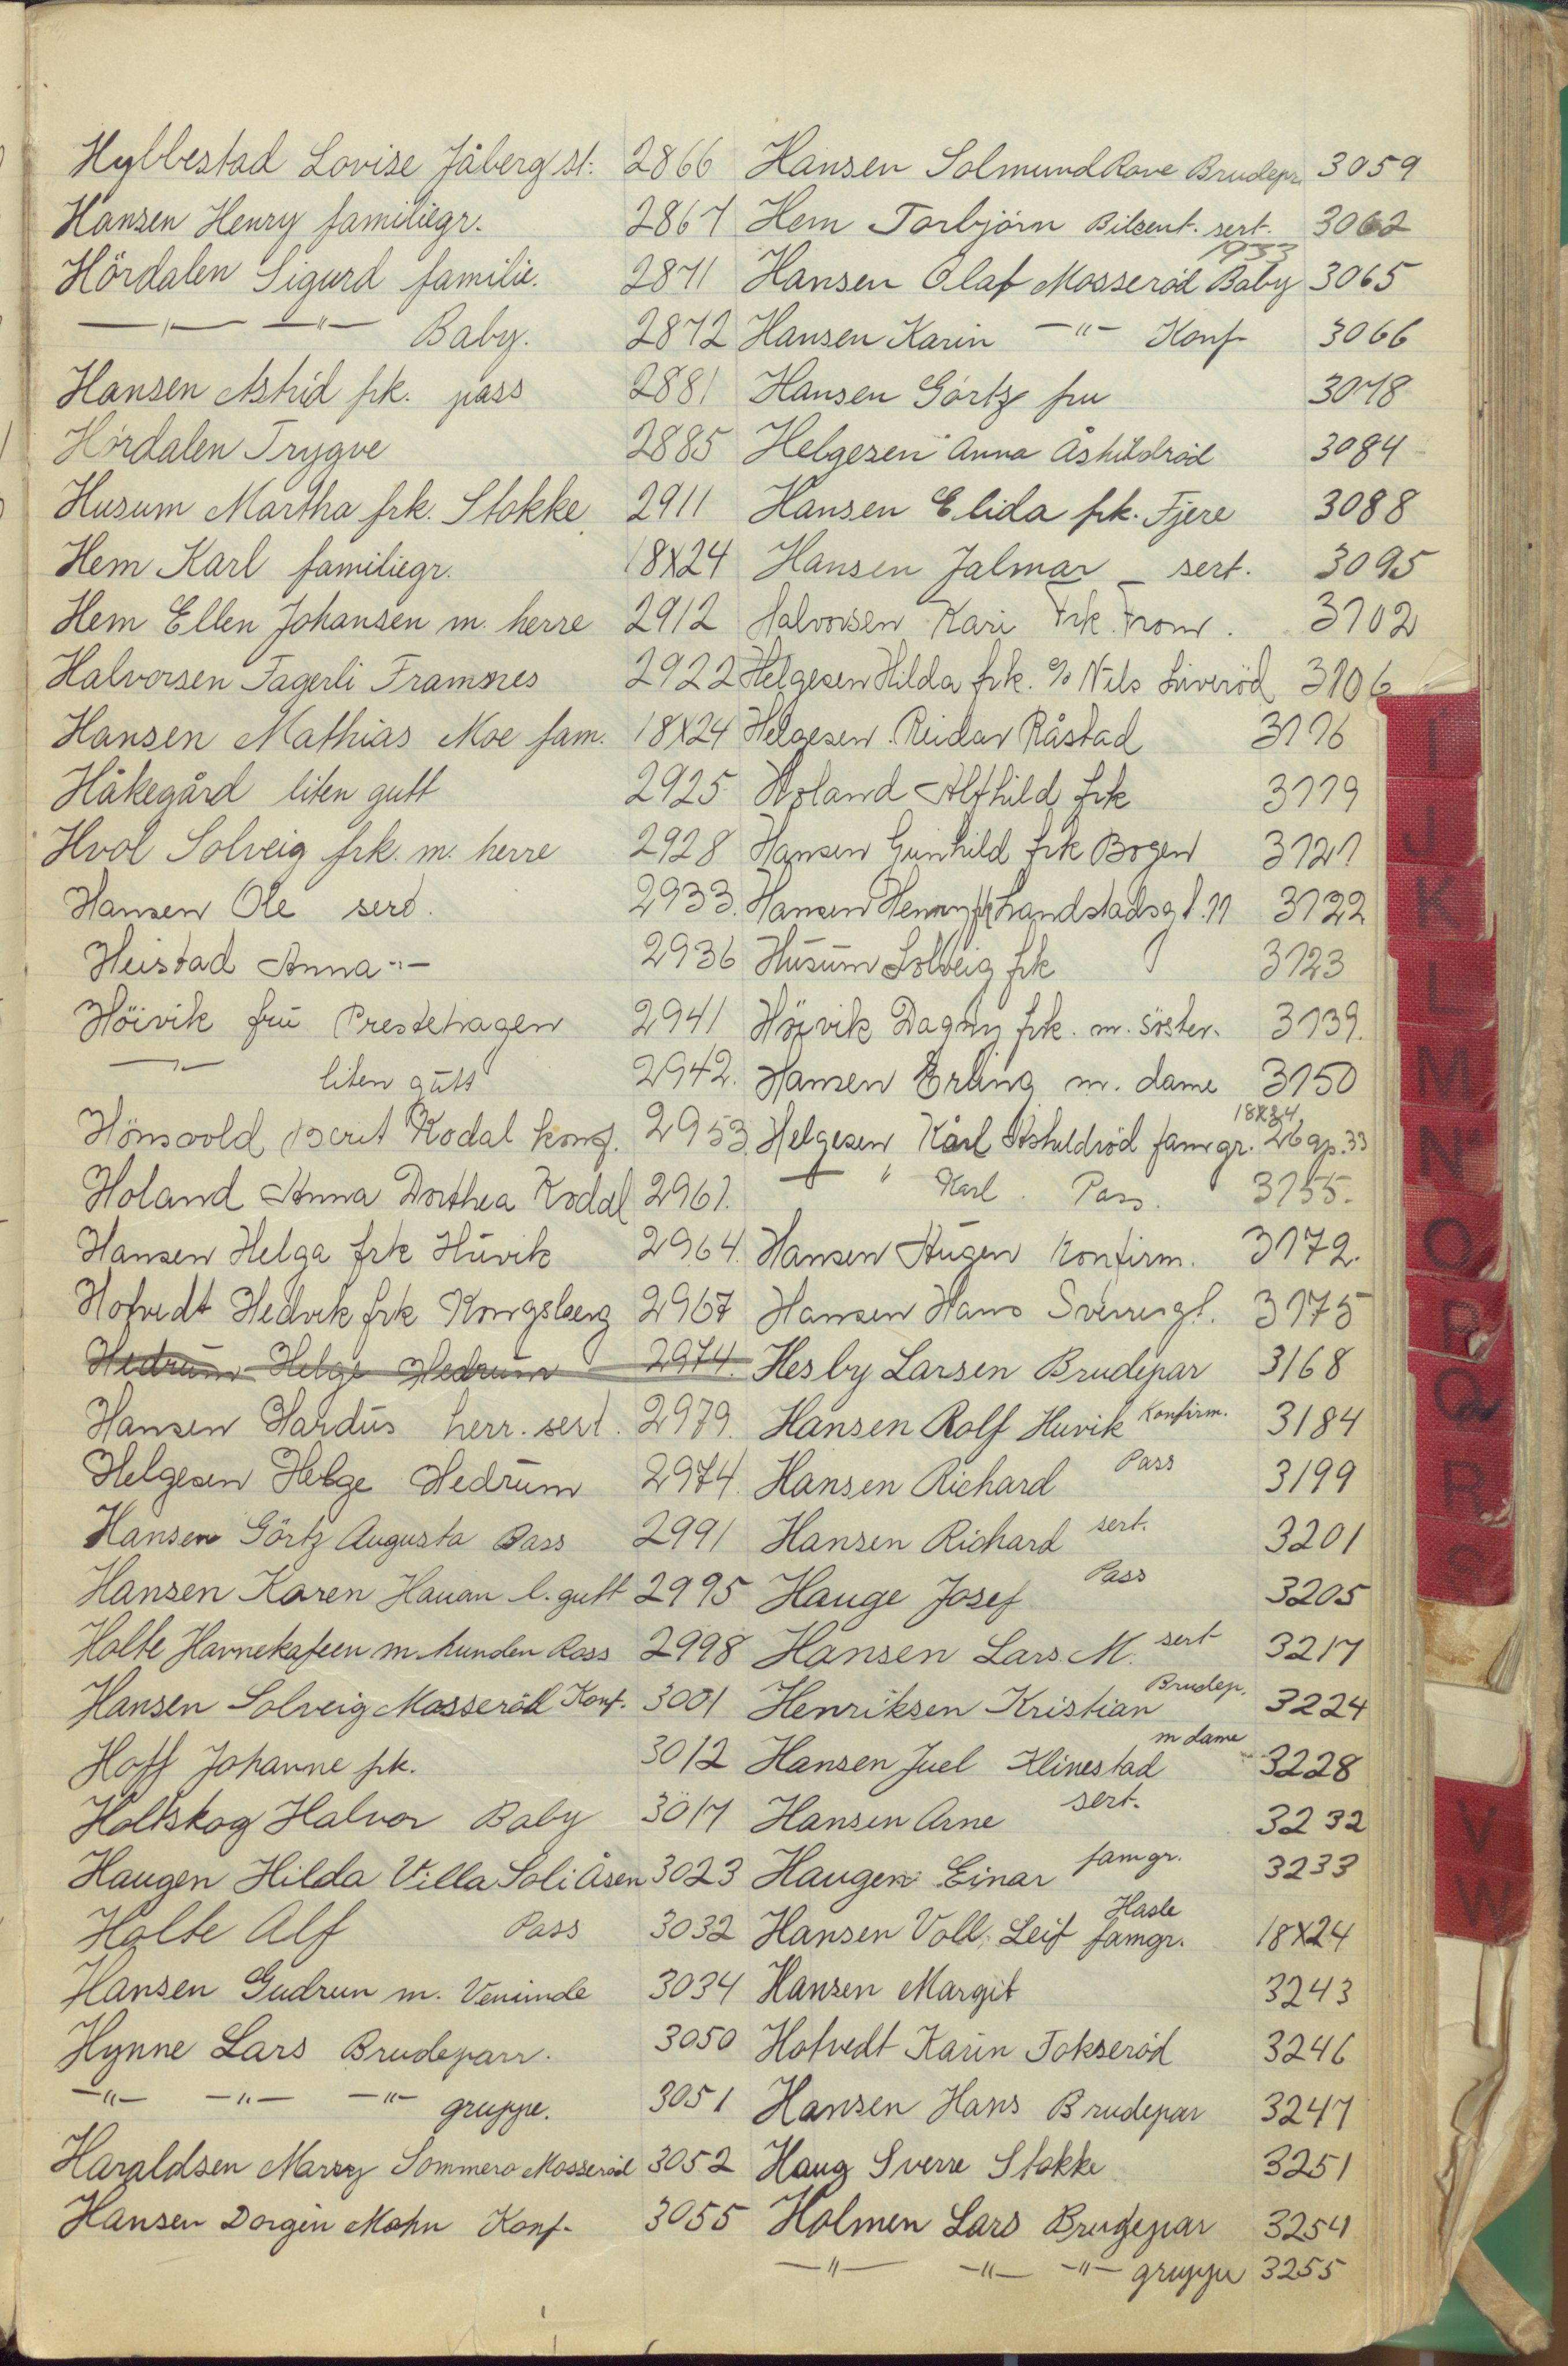 Hyllestad Lovise Jåberg st. 2866
Hansen Henry familiegr. 2867
Hördalen Sigurd familie. 2871
—"— —"— Baby. 2872
Hansen Astrid frk. pass 2881
Hördalen Trygve 2885
Husum Martha frk. Stokke 2911
Hem Karl familiegr. 18X24
Hem Ellen Johansen m. herre 2912
Halvorsen Fagerli Framnes 2922
Hansen Mathias Moe fam. 18X24
Håkegård liten gutt 2925
Hvol Solveig frk. m. herre 2928
Hansen Ole sert. 2933.
Heistad Anna -"- 2936
Höivik frü Prestehagen 2941
—"— liten gütt 2942.
Hönsvold Berit Kodal konf. 2953.
Holand Anna Dorthea Kodal 2961.
Hansen Helga frk Hüvik 2964.
Hotvedt Hedvik frk Kongsberg 2967
Hedrüm Helge Hedrüm 2974.
Hansen Hardüs herr. sert. 2979.
Helgesen Helge Hedrüm 2974.
Hansen Görtz Augusta Pass 2991
Hansen Karen Hauan l. gutt 2995
Holte Havnekafeen m. hunden Rass 2998
Hansen Solveig Mosseröd Konf. 3001
Hoff Johanne frk. 3012
Holtskog Halvor Baby 3017
Haugen Hilda Villa Soli Åsen 3023
Holte Alf Pass 3032
Hansen Gudrun m. Veninde 3034
Hynne Lars Brudeparr. 3050
—"— —"— —"— gruppe. 3051
Haraldsen Marry Sommero Mosseröd 3052
Hansen Dorgin Mohn Konf. 3055
Hansen Solmund Rove Brudepr. 3059
Hem Torbjörn Bilsent. sert. 3062
1933
Hansen Olaf Mosseröd Baby 3065
Hansen Karin —"— Konf 3066
Hansen Görtz fru 3078
Helgesen Anna Åshildröd 3084
Hansen Elida frk. Fjere 3088
Hansen Jalmar _ sert. 3095
Halvorsen Kari Frk. From. 3102
Helgesen Hilda frk. c/o Nils Liveröd 3106
Helgesen Reidar Råstad 3116
Holand Alfhild frk 3119
Hansen Gunhild frk Bogen 3121
Hansen Henny frk Landstadsgt. 11 3122
Hüsüm Solveig frk 3123
Höivik Dagny frk. m. söster. 3139.
Hansen Erling m. dame 3150
18X24
Helgesen Karl Åshildröd famgr. 26 ap. 33
—"— Karl. Pass. 3155.
Hansen Haugen Konfirm. 3172.
Hansen Hans Sverresgt. 3175
Hesby Larsen Brudepar 3168
Hansen Rolf Huvik Konfirm. 3184
Hansen Richard Pass 3199
Hansen Richard sert. 3201
Hauge Josef Pass 3205
Hansen Lars. M. sert 3217
Henriksen Kristian Brudep. 3224
Hansen Juel Klinestad m dame 3228
Hansen Arne sert. 3232
Haugen Einar famgr. 3233
Hansen Voll, Leif Hasle famgr. 18X24
Hansen Margit 3243
Hotvedt Karin Fokseröd 3246
Hansen Hans Brudepar 3247
Haug Sverre Stokke 3251
Holmen Lars Brudepar 3254
—"— —"— —"— gruppe 3255
I
J
K
L
M
N
O
P
Q
R
S
V
W